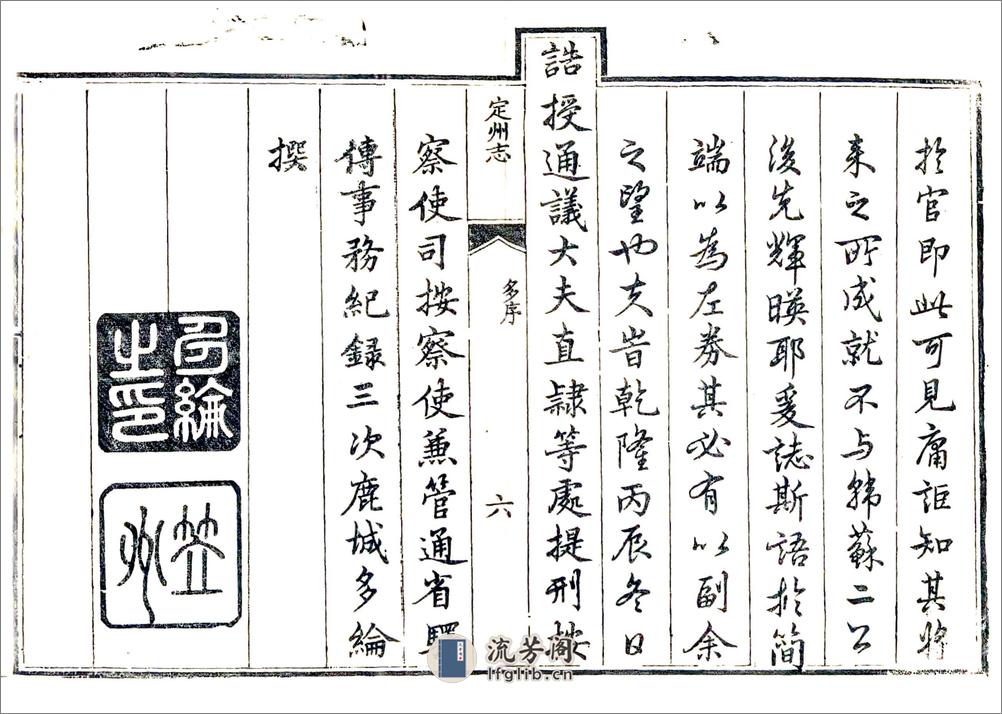 於官即此可見庸詎知其將
来之所成就不与韩蘇二公
後先輝暎耶爰誌斯語於簡
端以為左券其必有以副余
之望也夫旹乾隆丙辰冬日
誥授通議大夫直隸等處提刑按
定州志
多序
六
察使司按察使兼管通省驛
傳事務紀録三次鹿城多綸
撰
多綸之印
流芳阁
lfglib.cn